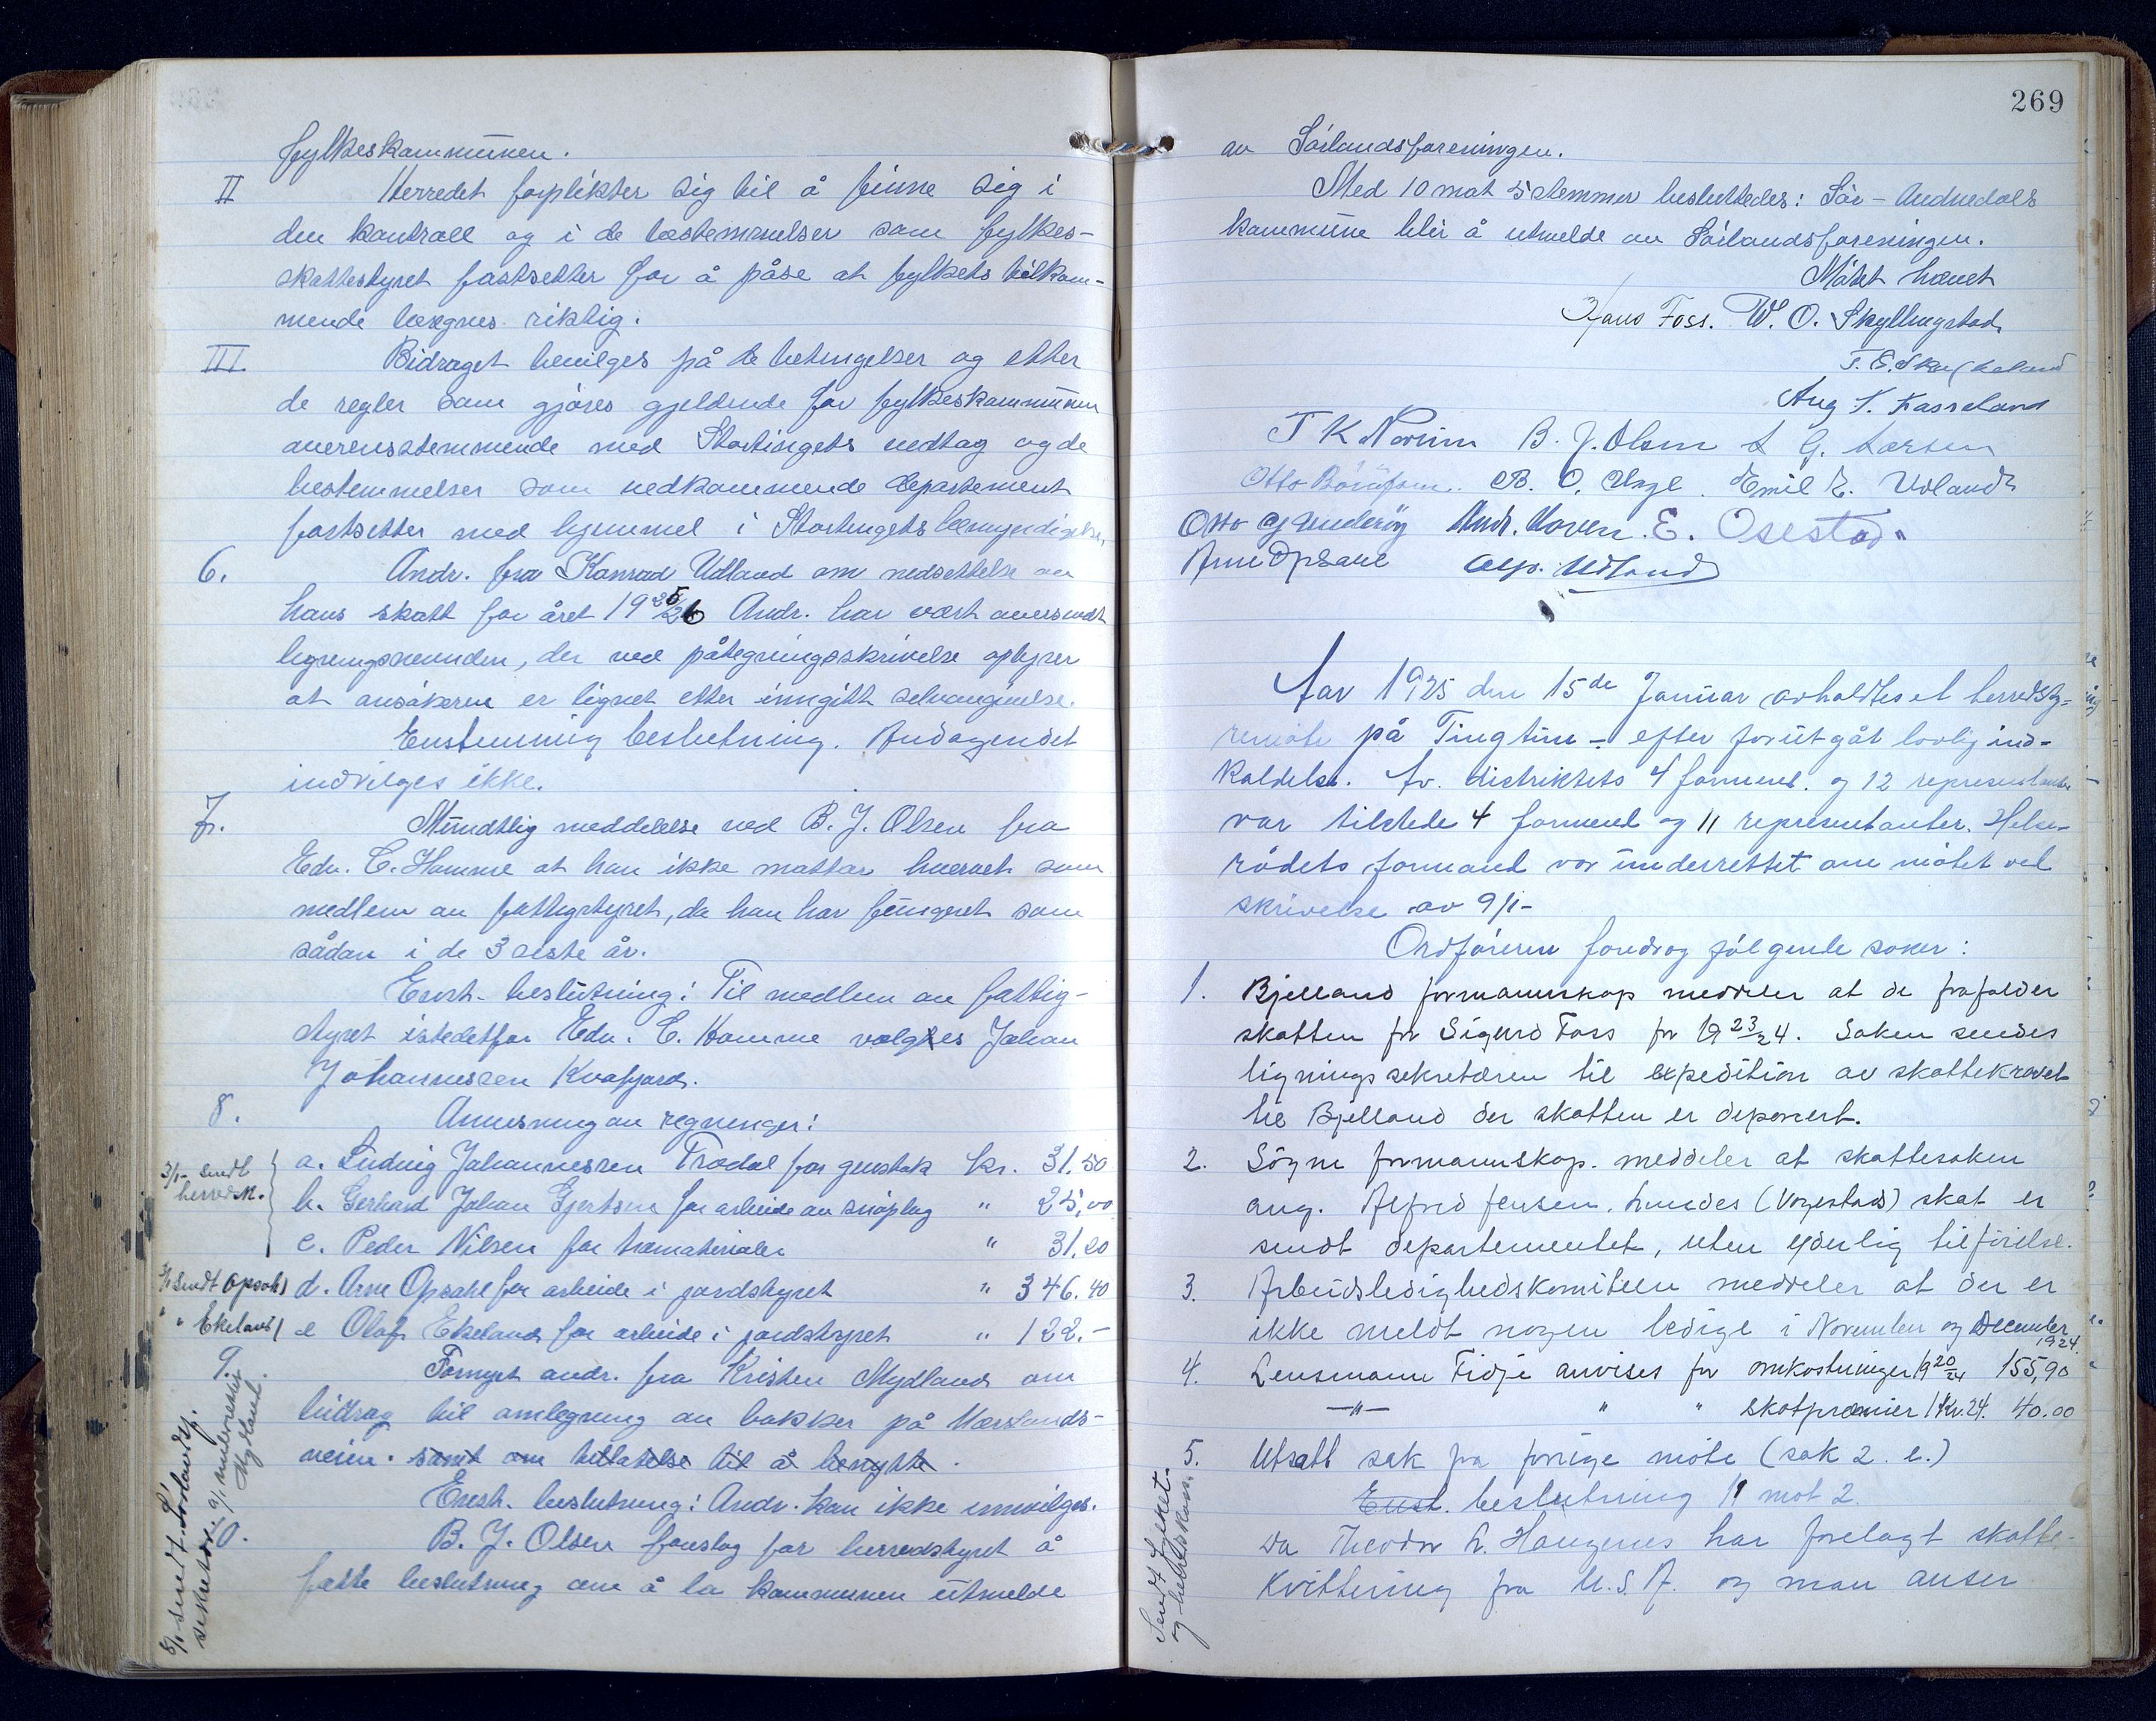 fylkeskommunen.
II Herredet forplikter sig til å finne sig i
den kontroll og i de bestemmelser som fylkes-
skattestyret fastsetter for å påse at fylkets tilkom-
mende beregnes riktig.
III. Bidraget bevilges på de betingelser og etter
de regler som gjøres gjeldende for fylkeskommunen
overensstemmende med Stortingets vedtag og de
bestemmelser som vedkommende departement
fastsetter med hjemmel i Stortingets bemyndigelse.
6. Andr. fra Konrad Udland om nedsettelse av
hans skatt for året 1925/26 Andr. har vært oversendt
ligningsnevnden, der ved påtegningsskrivelse oplyser
at ansökeren er lignet etter inngitt selvangivelse.
Enstemmig beslutning. Andragendet
indvilges ikke.
7. Mundtlig meddelelse ved B. J. Olsen fra
Edv. C. Homme at han ikke mottar hvervet som
medlem av fattigstyret, da han har fungeret som
sådan i de 3 siste år.
Enst. beslutning: Til medlem av fattig-
styret istedetfor Edv. C. Homme velges Johan
Johannessen Kvafjord.
8. Anvisning av regninger:
a. Ludvig Johannessen Trodal for gjenstak kr. 31.50
b. Gerhard Johan Gjertsen for arbeide av snöplog " 25,00
c. Peder Nilsen for træmaterialer " 31.20
3/1- sendt
herredsk.
d. Arne Opsahl for arbeide i jordstyret " 346.40
3/1 Sendt Opsahl
e Olaf Ekeland for arbeide i jordstyret " 122.-
" " Ekeland
9. Fornyet andr. fra Kristen Mydland om
bidrag til omlegning av bakker på
veien. samt om tillatelse til å benytte.
Enst. beslutning: Andr. kan ikke innvilges.
9/1 underrettet
Mydland.
10. B. J. Olsen forslag for herredstyret å
fatte beslutning om å la kommunen utmelde
8/1 sendt Sörlandsf.
sekretær
269
av Sörlandsforeningen.
Med 10 mot 5 stemmer besluttedes: Sör-Audnedals
kommune blir å utmelde av Sörlandsforeningen.
Mötet hævet
Hans Foss. W. O. Skyllingstad
T. E.
Aug
T K Norum B. J. Olsen L G. Larsen
Otto B. O. Emil E. Udland
Otto Andr. E. Osestad.
Arne Opsahl Asp. Udland
Aar 1925 den 15de Januar avholdtes et herredsty-
remöte på Tingtun - efter forutgåt lovlig ind-
kaldelse. Av distriktets 4 formend. og 12 representanter
var tilstede 4 formend og 11 representanter. Helse-
rådets formand var underrettet om mötet ved
skrivelse av 9/1-
Ordföreren foredrog fölgende saker:
1. Bjelland formannskap meddeler at de frafalder
skatten for Sigurd Foss for 1923/24. Saken sendes
ligningssekretæren til expedition av skattekravet
til Bjelland der skatten er deponert.
2. Sögne formannskap. meddeler at skattesaken
ang. Alfred Jensen. Lundes (Vogestad) skat er
sendt departementet, uten yderlig tilförelse.
3. Arbeidsledighedskomiteen meddeler at der er
ikke meldt nogen ledige i November og December
1924.
4. Lensmann Fidje anvises for omkostninger 1920/24 155,90
-"- " " skotpræmier 1 Kv. 24. 40.00
5. Utsatt sak fra forrige möte (sak 2. e.)
Enst. beslutning 11 mot 2.
Da Theodor L. Haugenes har forelagt skatte-
kvittering fra U.S.A. og man anser
Sendt
og